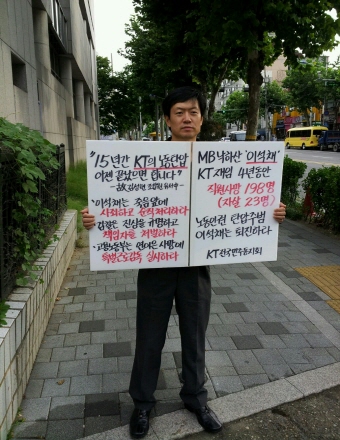 "15년간 KT의 노동탄압
이젠 끝났으면 합니다"
-故 김성현 조합원 유서中-
•이석채는 죽음앞에
사죄하고 순직처리하라
•검찰은 진실을 규명하고
책임자를 처벌하라
•고용노동부는 연이은 사망에
특별근로감독 실시하라
MB낙하산 '이석채'
KT 재임 4년동안
직원사망 198명
(자살 23명)
노동인권 탄압주범
이석채는 퇴진하라
KT전국민주동지회